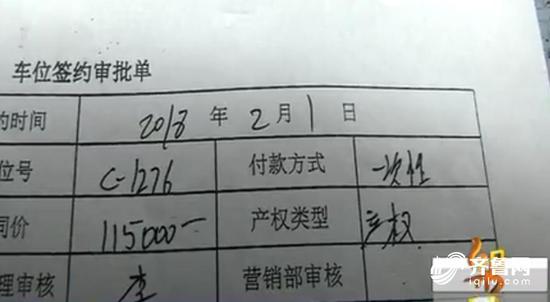 车位签约审批单
约时间 2018 年 2 月 1 日
位号 C-1276 付款方式 一次性
同价 115000一 产权类型 产权
理审核 李 营销部审核
齐鲁网
iqilu.com